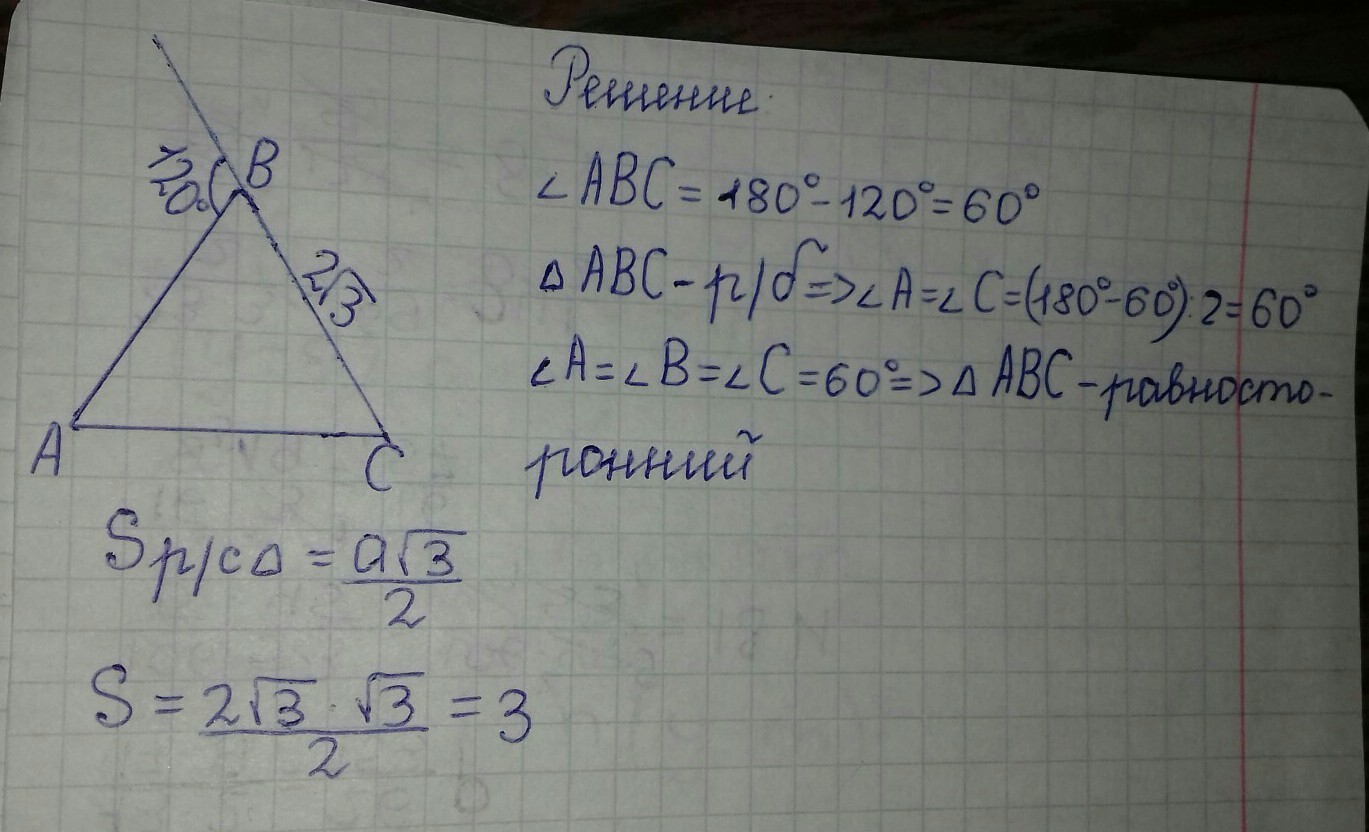 Решение.
120°
B
2√3
A
C
∠ABC = 180° - 120° = 60°
△ABC - р/б => ∠A = ∠C = (180° - 60°) : 2 = 60°
∠A = ∠B = ∠C = 60° => △ABC - равносто-
ронний
S р/с △ = a√3 / 2
S = 2√3 · √3 / 2 = 3